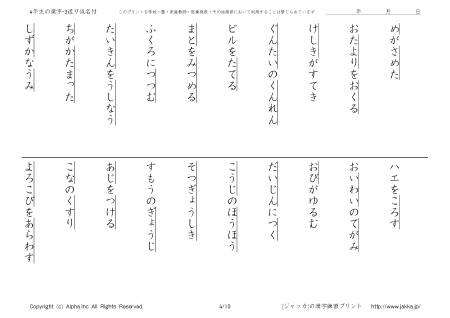 4年生の漢字-3送り仮名付
このプリントを学校・塾・家庭教師・医療機関・その他施設において利用することは禁じられています
年 月 日
めがさめた
おたよりをおくる
けしきがすてき
ぐんたいのくんれん
ビルをたてる
まとをみつめる
ふくろにつつむ
たいきんをうしなう
ちがかたまった
しずかなうみ
ハエをころす
おいわいのてがみ
おびがゆるむ
だいじんにつく
こうじのほうほう
そつぎょうしき
すもうのぎょうじ
あじをつける
こなのくすり
よろこびをあらわす
Copyright (c) Alpha.Inc All Rights Reserved.
4/10
[ジャッカ]の漢字練習プリント http://www.jakka.jp/